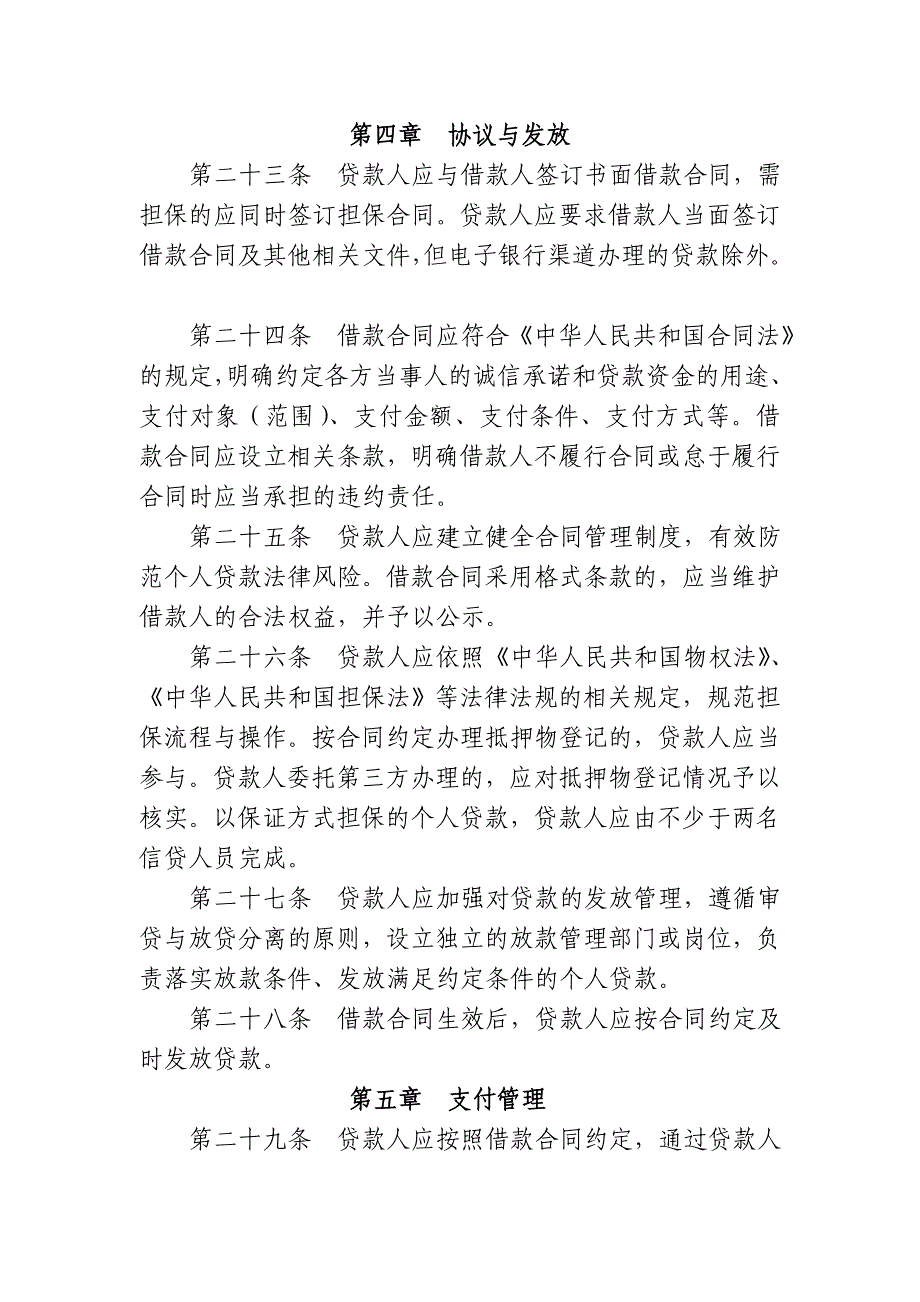 第四章　协议与发放
第二十三条　贷款人应与借款人签订书面借款合同，需
担保的应同时签订担保合同。贷款人应要求借款人当面签订
借款合同及其他相关文件，但电子银行渠道办理的贷款除外。
第二十四条　借款合同应符合《中华人民共和国合同法》
的规定，明确约定各方当事人的诚信承诺和贷款资金的用途、
支付对象（范围）、支付金额、支付条件、支付方式等。借
款合同应设立相关条款，明确借款人不履行合同或怠于履行
合同时应当承担的违约责任。
第二十五条　贷款人应建立健全合同管理制度，有效防
范个人贷款法律风险。借款合同采用格式条款的，应当维护
借款人的合法权益，并予以公示。
第二十六条　贷款人应依照《中华人民共和国物权法》、
《中华人民共和国担保法》等法律法规的相关规定，规范担
保流程与操作。按合同约定办理抵押物登记的，贷款人应当
参与。贷款人委托第三方办理的，应对抵押物登记情况予以
核实。以保证方式担保的个人贷款，贷款人应由不少于两名
信贷人员完成。
第二十七条　贷款人应加强对贷款的发放管理，遵循审
贷与放贷分离的原则，设立独立的放款管理部门或岗位，负
责落实放款条件、发放满足约定条件的个人贷款。
第二十八条　借款合同生效后，贷款人应按合同约定及
时发放贷款。
第五章　支付管理
第二十九条　贷款人应按照借款合同约定，通过贷款人